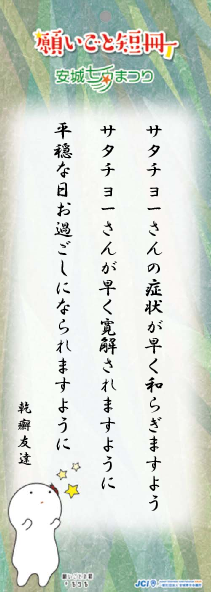 願いごと短冊
安城七夕まつり
サタチョーさんの症状が早く和らぎますよう
サタチョーさんが早く寛解されますように
平穏な日お過ごしになられますように
乾癬友達
JCI